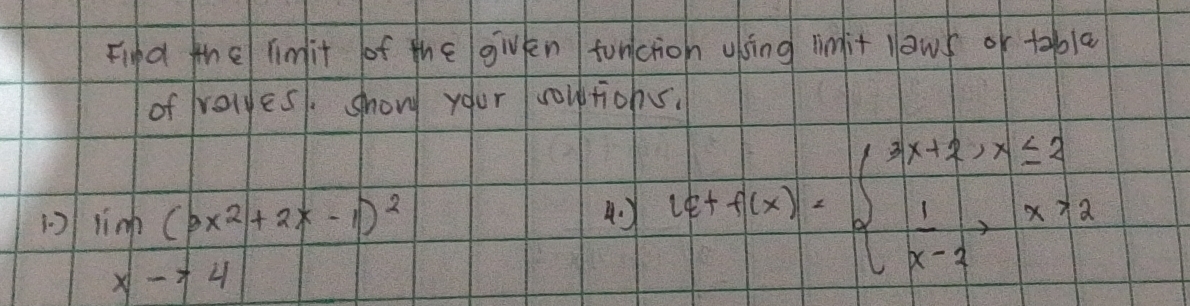 Find the limit of the given function using limit laws or table
of values. Show your solutions.
1.) lim (3x2 + 2x - 1)²
x -> 4
4.) let f(x) = { 3x+2, x ≤ 2
1/x-2, x > 2